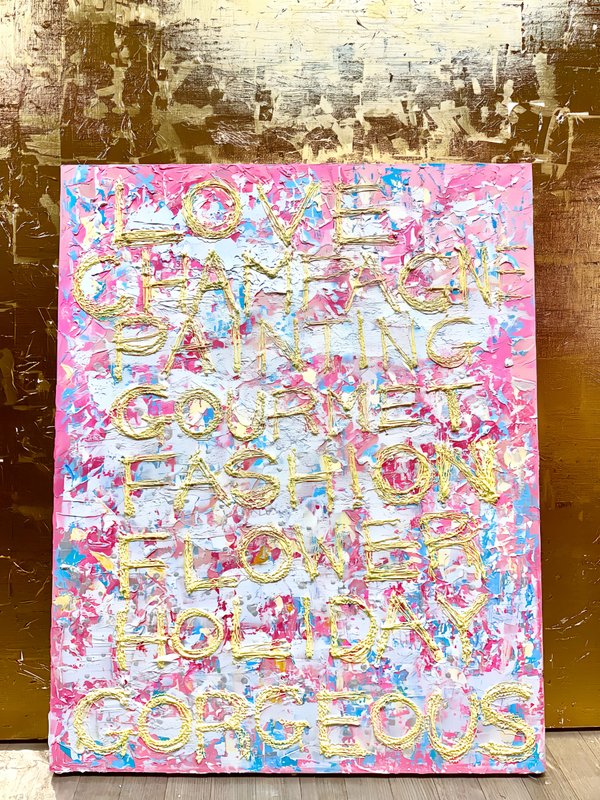 LOVE
CHAMPAGNE
PAINTING
GOURMET
FASHION
FLOWER
HOLIDAY
GORGEOUS